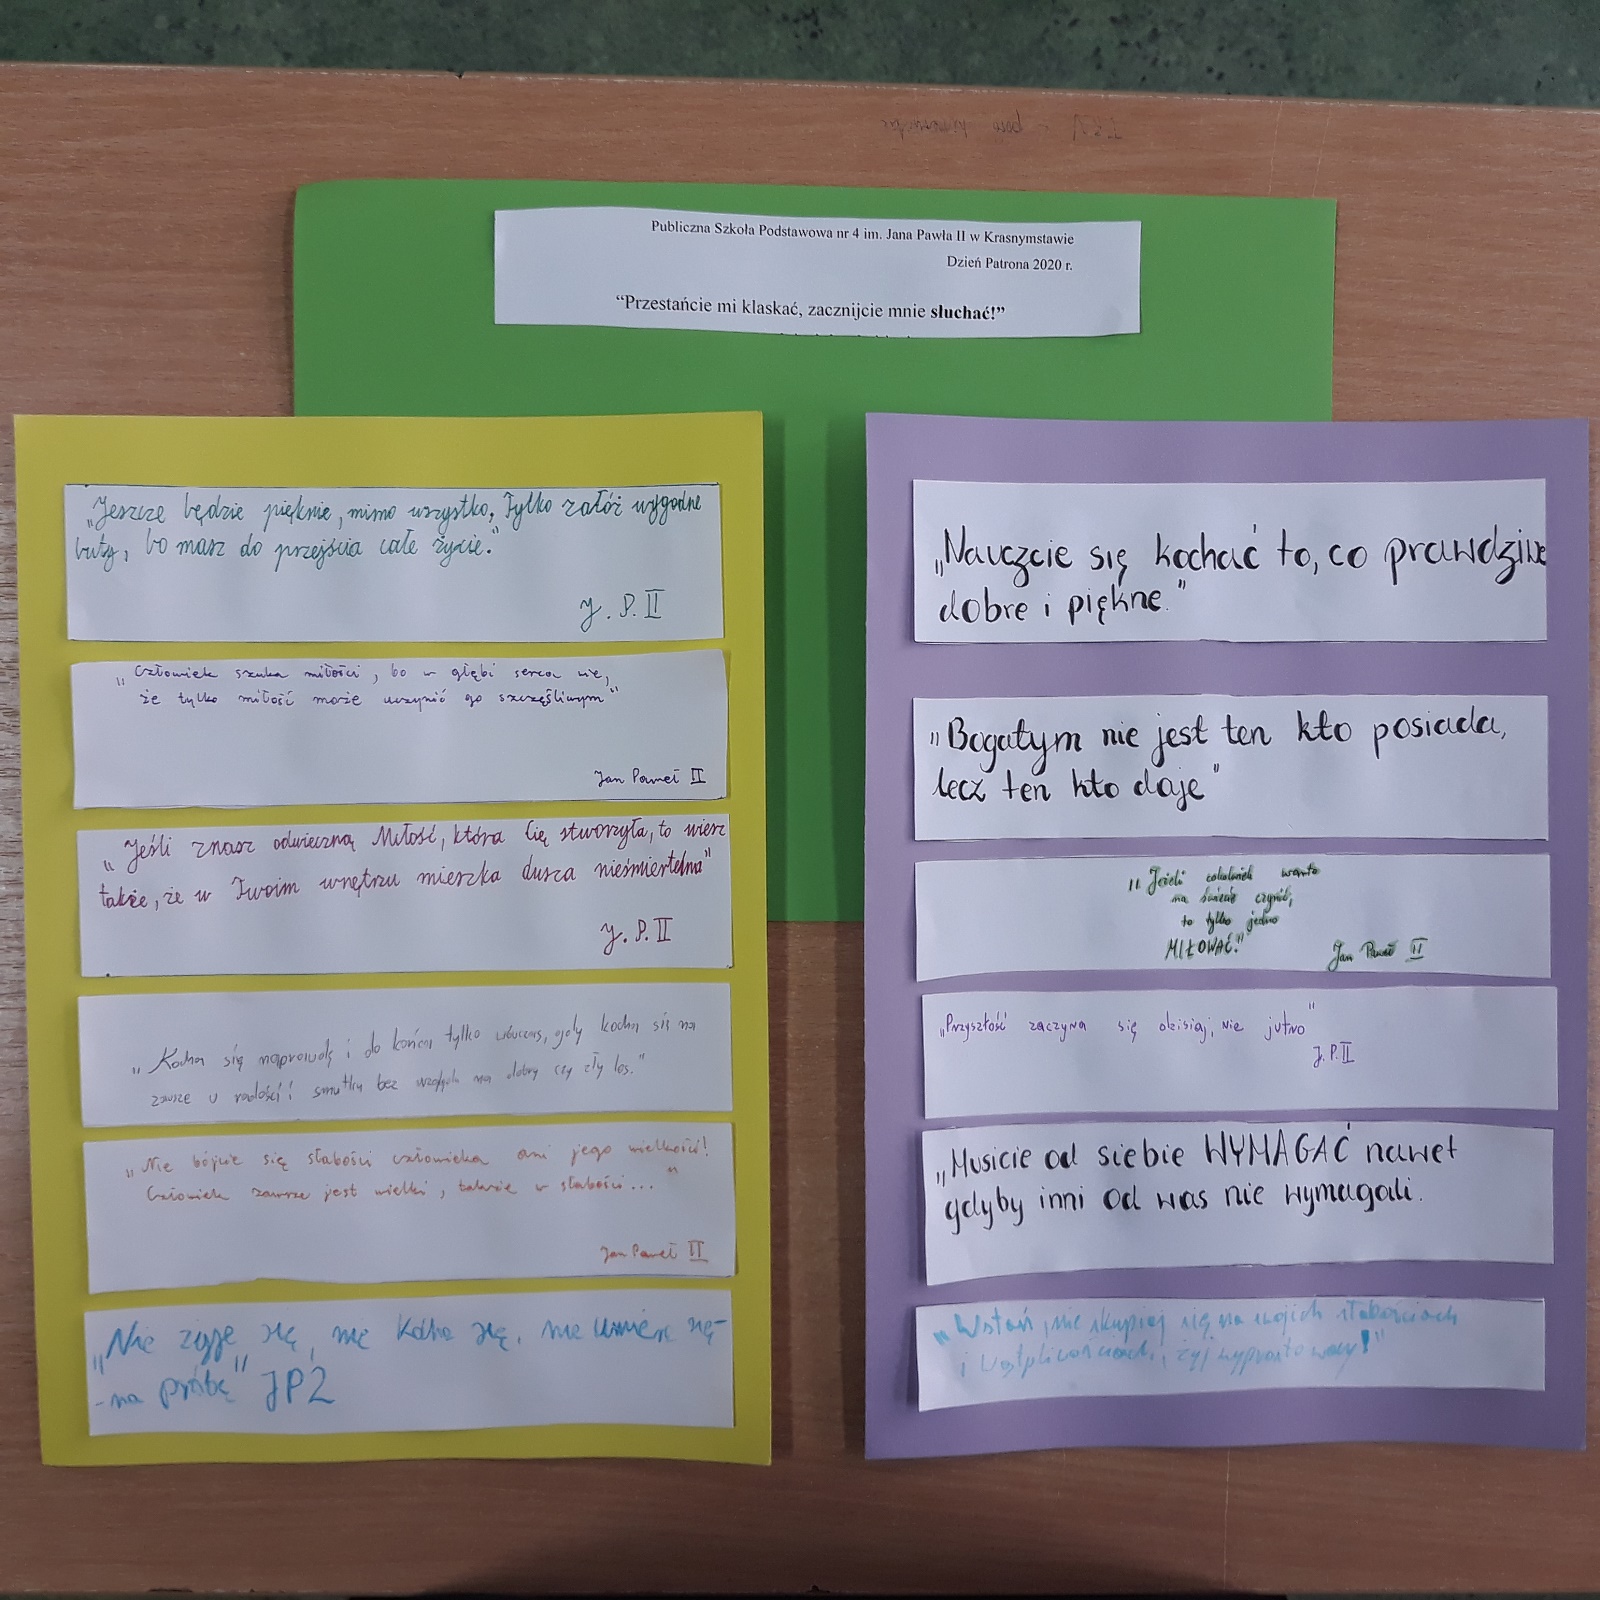 Publiczna Szkoła Podstawowa nr 4 im. Jana Pawła II w Krasnymstawie
Dzień Patrona 2020 r.
“Przestańcie mi klaskać, zacznijcie mnie słuchać!”
„Jeszcze będzie pięknie, mimo wszystko. Tylko załóż wygodne
buty, bo masz do przejścia całe życie.”
J. P. II
„Człowiek szuka miłości, bo w głębi serca wie,
że tylko miłość może uczynić go szczęśliwym”
Jan Paweł II
„Jeśli znasz odwieczną Miłość, która Cię stworzyła, to wiesz
także, że w Twoim wnętrzu mieszka dusza nieśmiertelna”
J. P. II
„Kocha się naprawdę i do końca tylko wówczas, gdy kocha się na
zawsze w radości i smutku bez względu na dobry czy zły los.”
„Nie bójcie się słabości człowieka ani jego wielkości!
Człowiek zawsze jest wielki, także w słabości...”
Jan Paweł II
„Nie żyje się, nie kocha się, nie umiera się-
-na próbę” JP2
„Nauczcie się kochać to, co prawdziwe
dobre i piękne.”
„Bogatym nie jest ten kto posiada,
lecz ten kto daje”
„Jeżeli cokolwiek warto
na świecie czynić,
to tylko jedno
MIŁOWAĆ.”
Jan Paweł II
„Przyszłość zaczyna się dzisiaj, nie jutro”
J. P. II
„Musicie od siebie WYMAGAĆ nawet
gdyby inni od was nie wymagali.
„Wstań, nie skupiaj się na swoich słabościach
i wątpliwościach, żyj wyprostowany!”